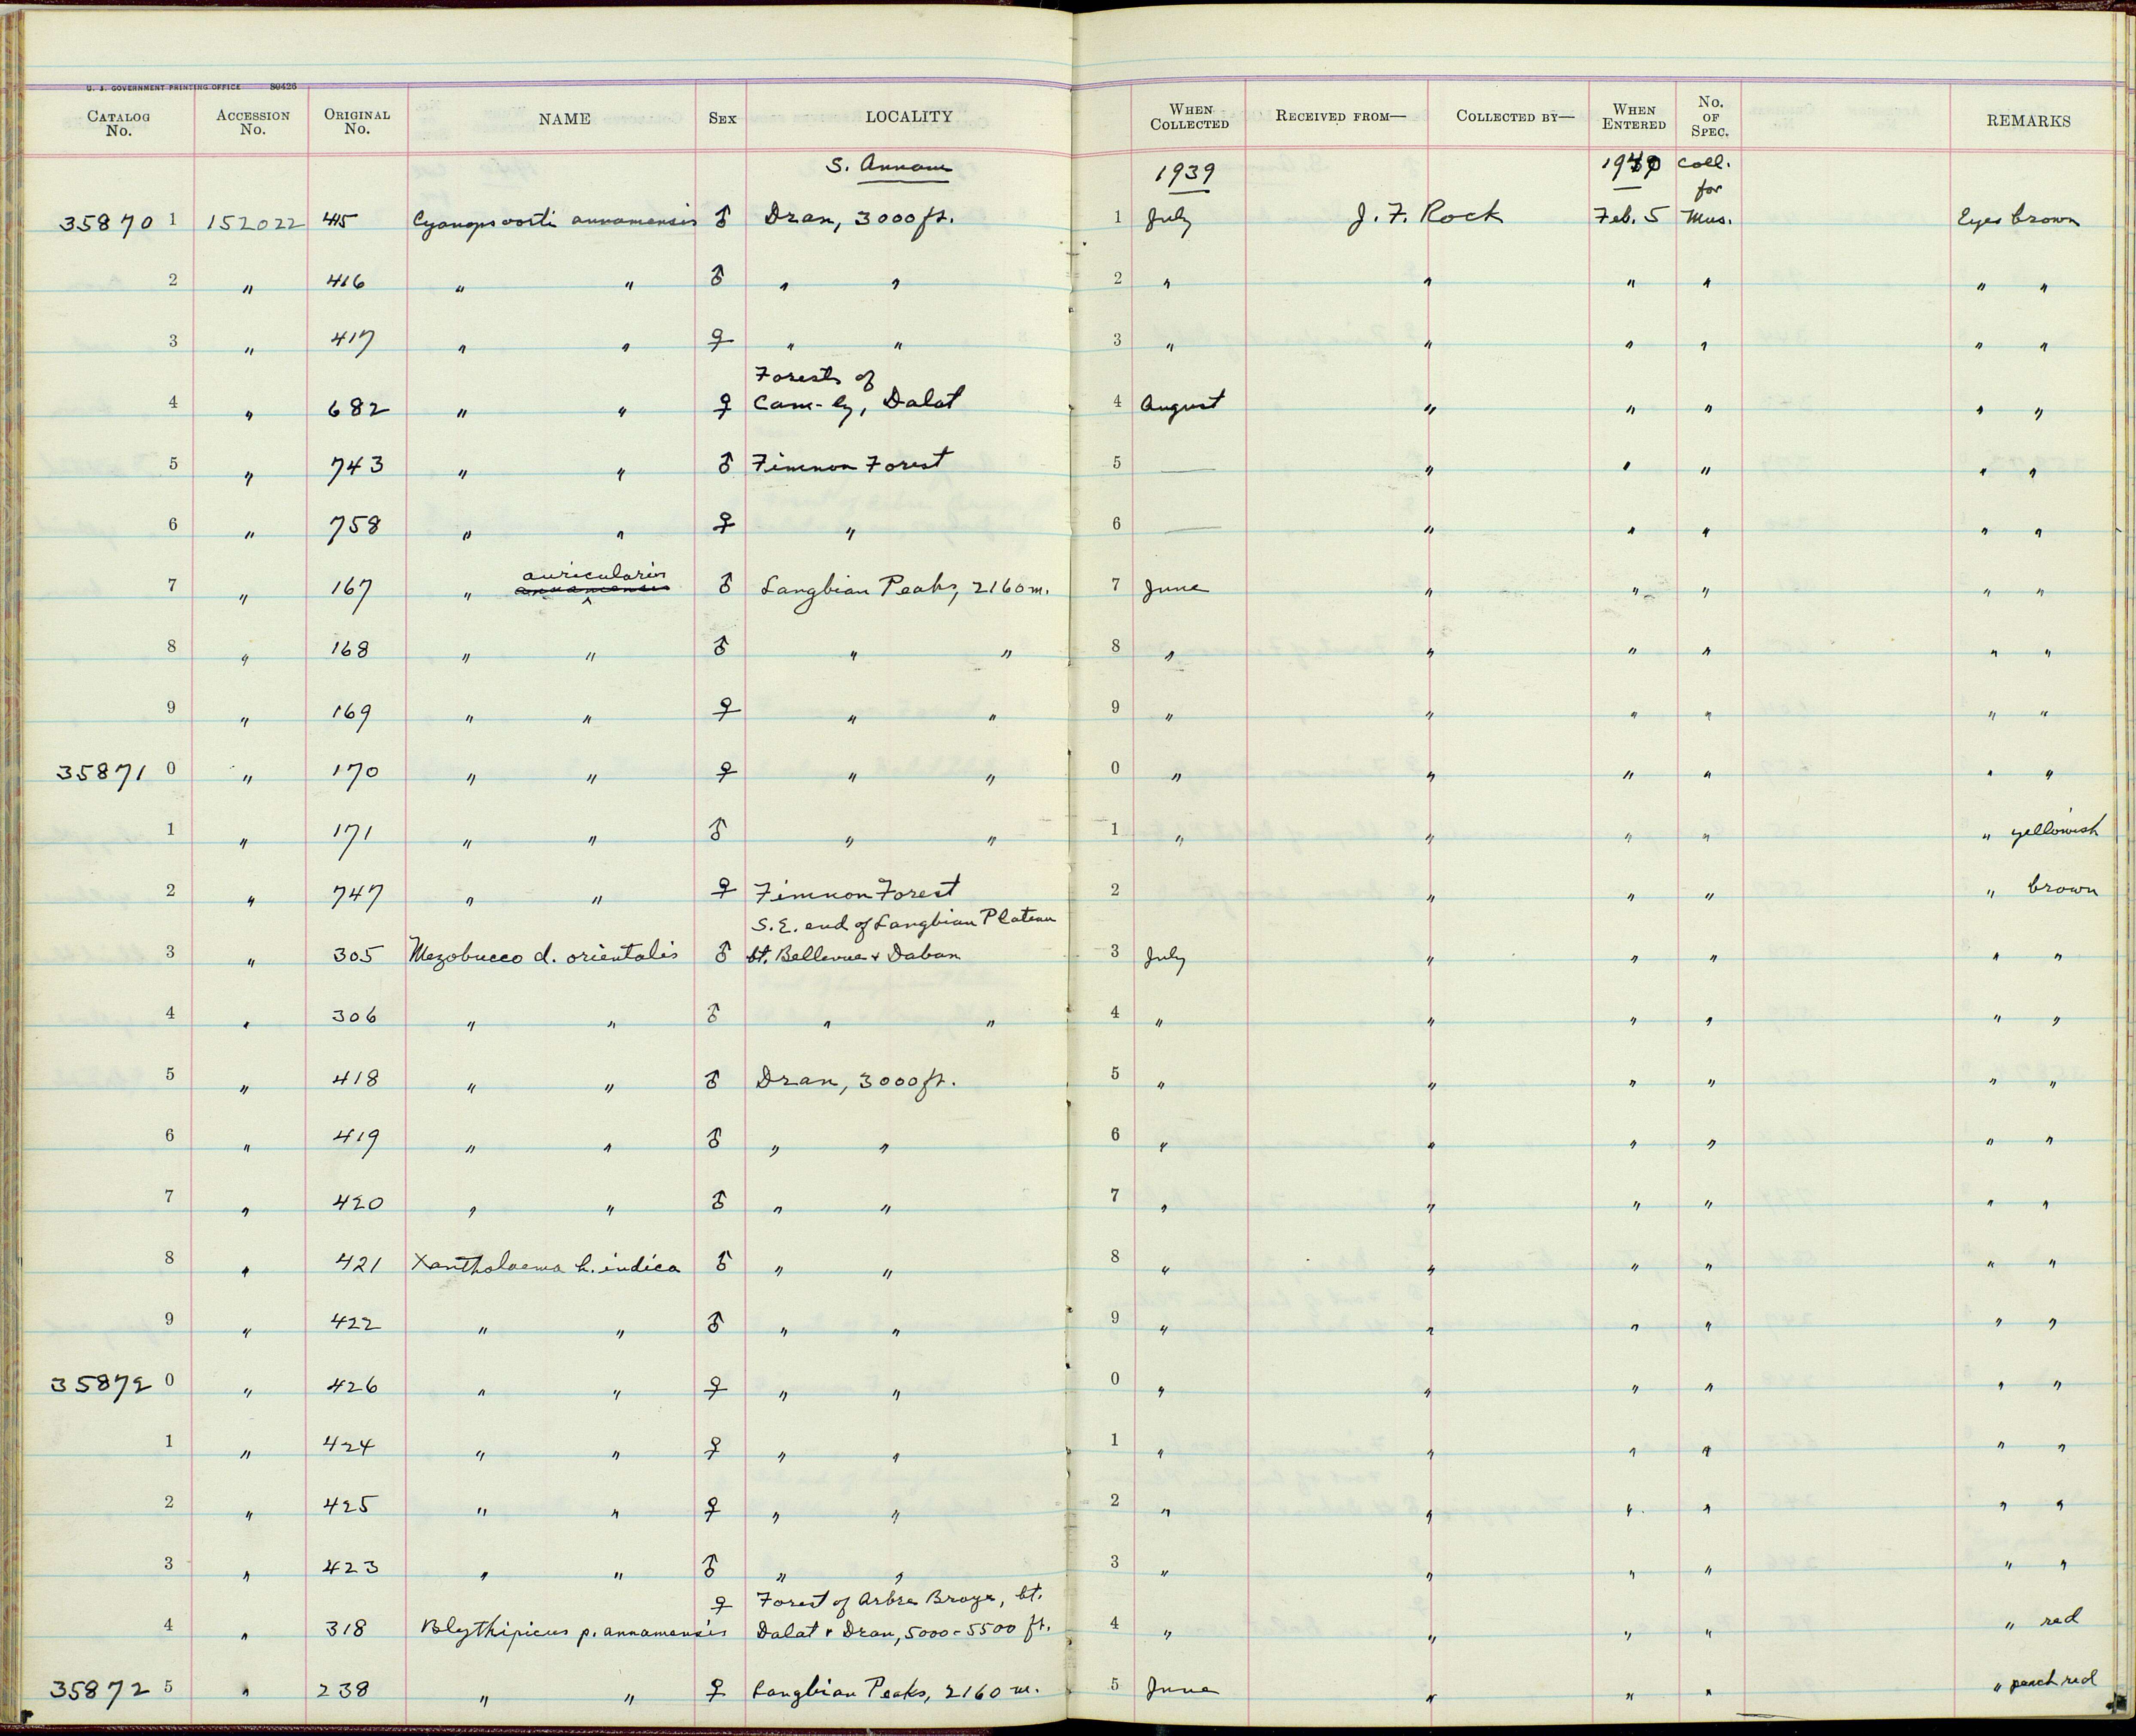 U. S. GOVERNMENT PRINTING OFFICE 89426
CATALOG No. ACCESSION No. ORIGINAL No. NAME SEX LOCALITY WHEN COLLECTED RECEIVED FROM— COLLECTED BY— WHEN ENTERED No. OF SPEC. REMARKS
S. Annam 1939 1940 Coll. for
35870 1 152022 415 Cyanops oorti annamensis ♂ Dran, 3000 ft. 1 July J. F. Rock Feb. 5 Mus. Eyes brown
2 " 416 " " ♂ " " 2 " " " " " "
3 " 417 " " ♀ " " 3 " " " " " "
Forests of
4 " 682 " " ♀ Cam-ly, Dalat 4 August " " " " "
5 " 743 " " ♂ Fimnon Forest 5 — " " " " "
6 " 758 " " ♀ " 6 — " " " " "
auricularis
7 " 167 " annamensis ♂ Langbian Peaks, 2160 m. 7 June " " " " "
8 " 168 " " ♂ " " 8 " " " " " "
9 " 169 " " ♀ " " 9 " " " " " "
35871 0 " 170 " " ♀ " " 0 " " " " " "
1 " 171 " " ♂ " " 1 " " " " " yellowish
2 " 747 " " ♀ Fimnon Forest 2 " " " " brown
S.E. end of Langbian Plateau
3 " 305 Mezobucco d. orientalis ♂ bt. Bellevue & Daban 3 July " " " " "
4 " 306 " " ♂ " " 4 " " " " " "
5 " 418 " " ♂ Dran, 3000 ft. 5 " " " " " "
6 " 419 " " ♂ " " 6 " " " " " "
7 " 420 " " ♂ " " 7 " " " " " "
8 " 421 Xantholaema h. indica ♂ " " 8 " " " " " "
9 " 422 " " ♂ " " 9 " " " " " "
35872 0 " 426 " " ♀ " " 0 " " " " " "
1 " 424 " " ♀ " " 1 " " " " " "
2 " 425 " " ♀ " " 2 " " " " " "
3 " 423 " " ♂ " " 3 " " " " " "
♀ Forest of Arbre Broye, bt.
4 " 318 Blythipicus p. annamensis Dalat & Dran, 5000-5500 ft. 4 " " " " " red
35872 5 " 238 " " ♀ Langbian Peaks, 2160 m. 5 June " " " " peach red